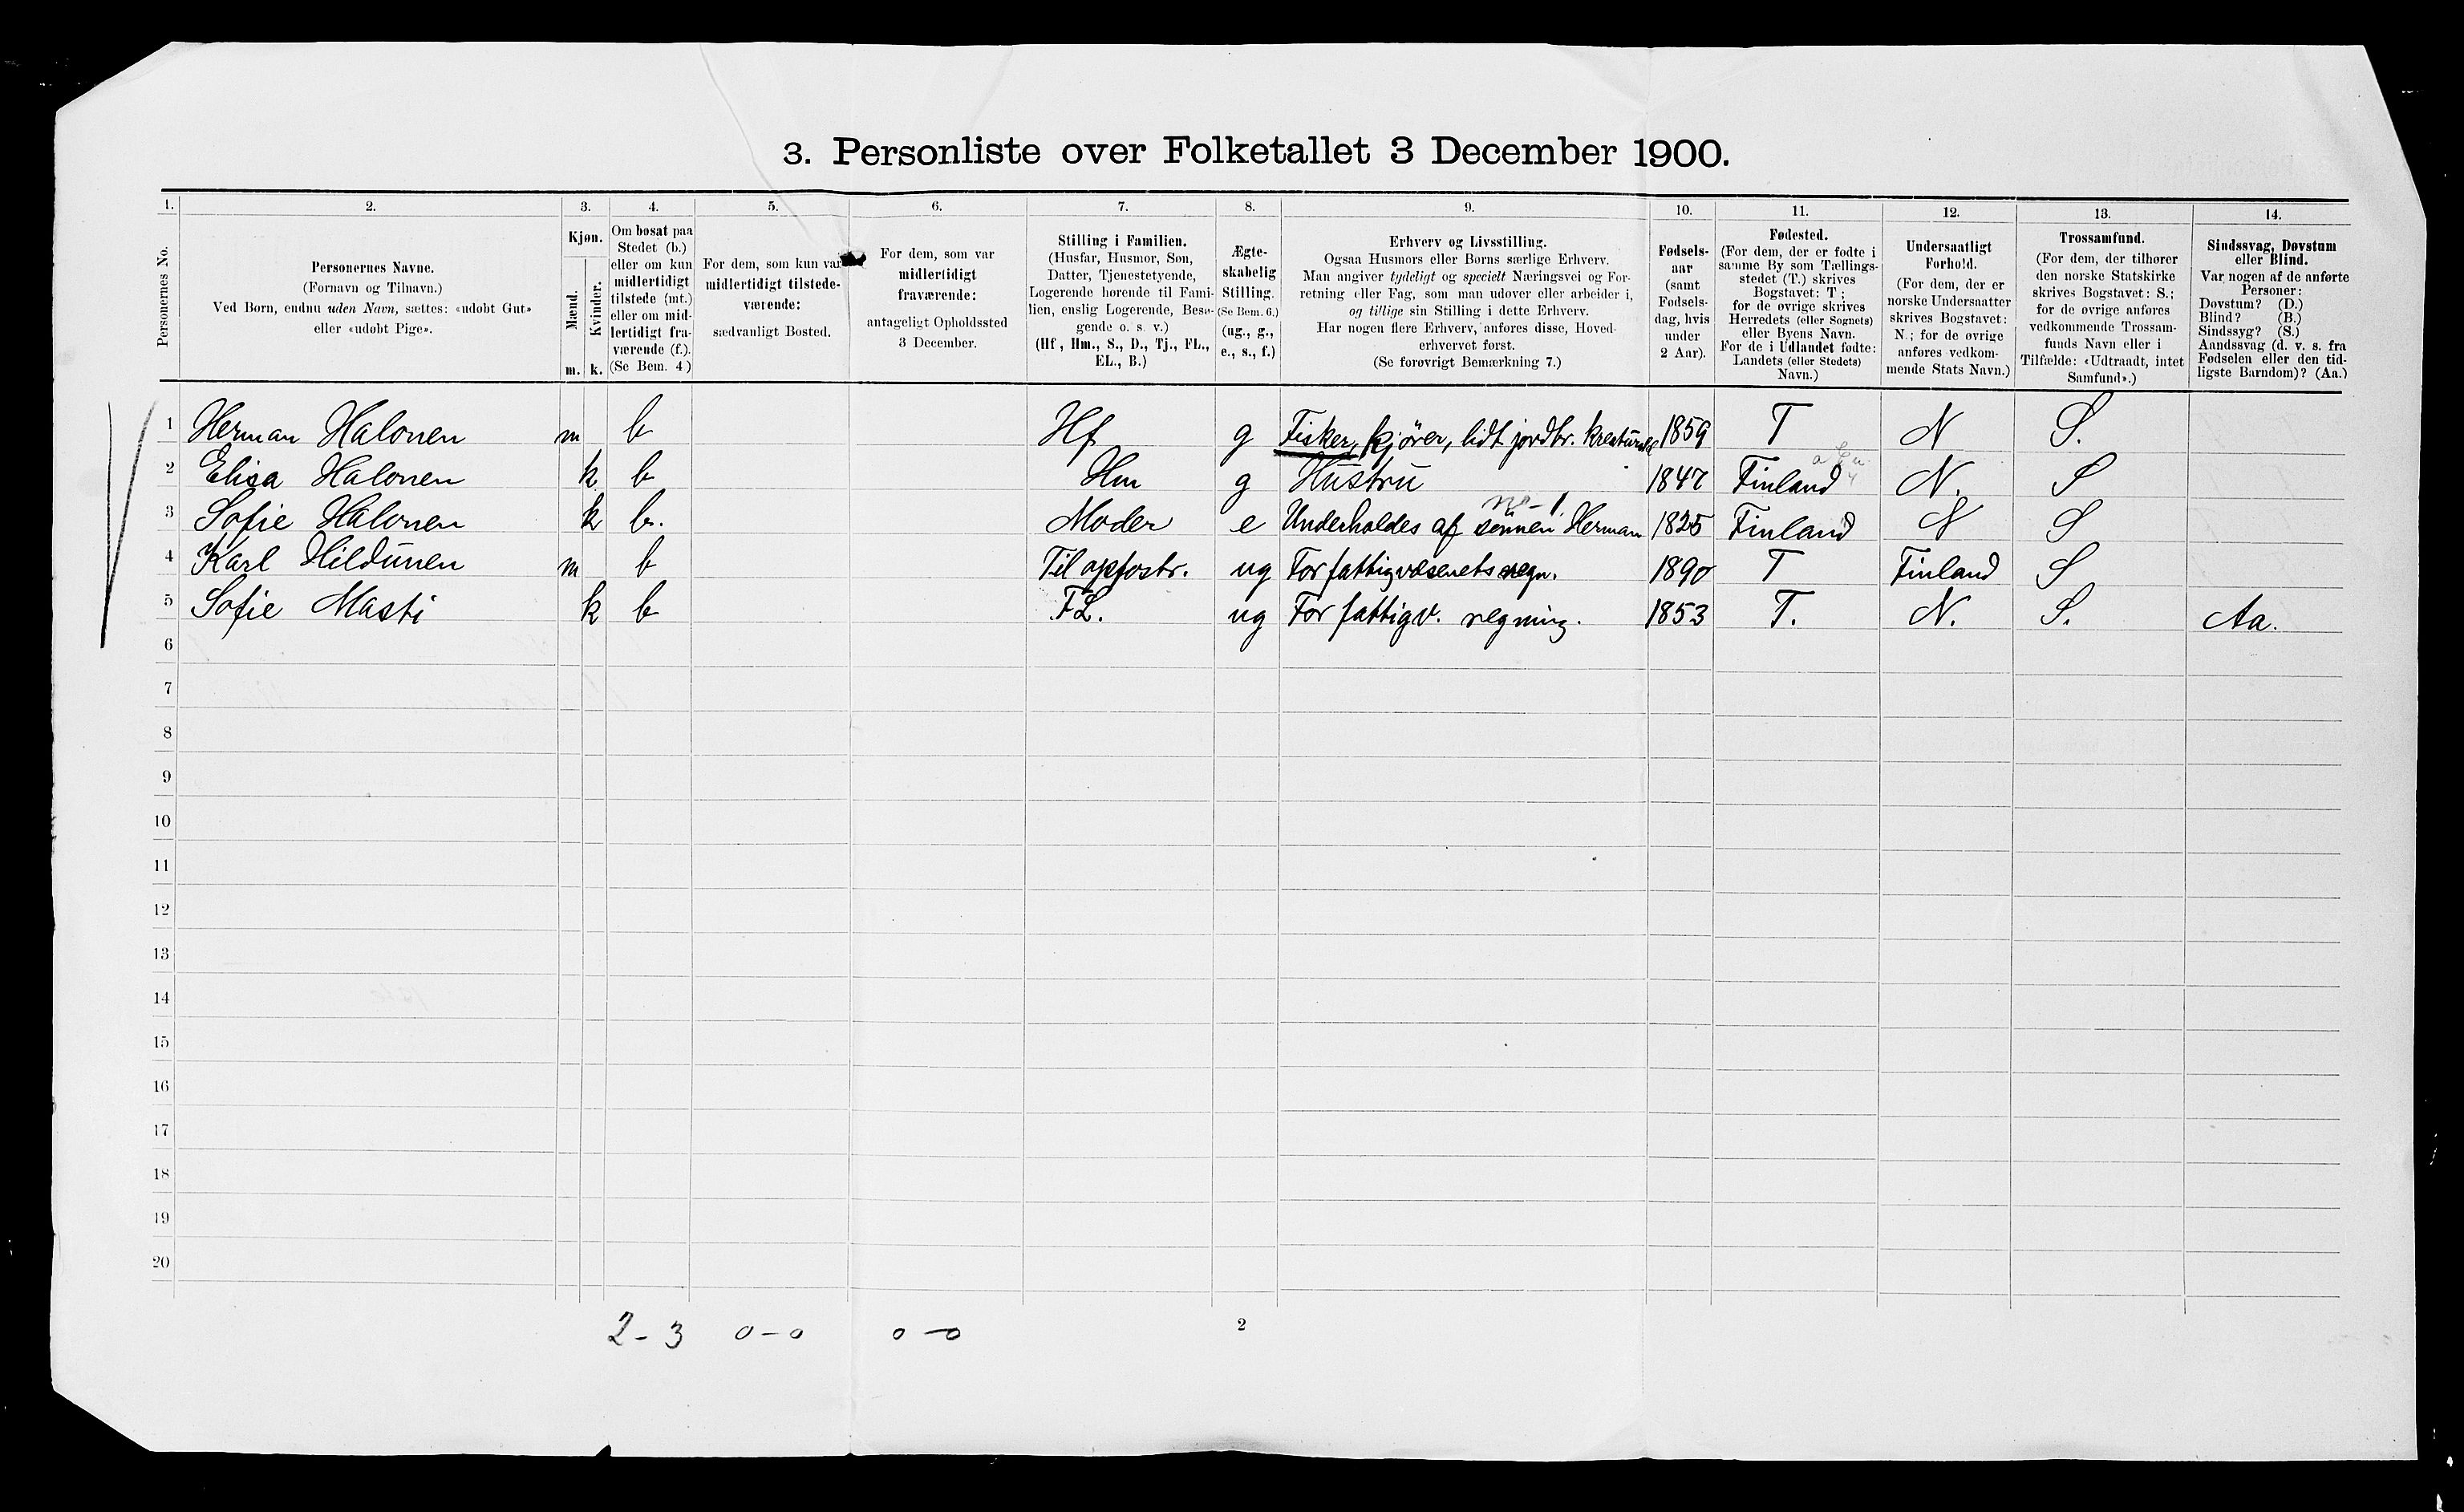 3. Personliste over Folketallet 3 December 1900.
1. 2. 3. 4. 5. 6. 7. 8. 9. 10. 11. 12. 13. 14.
Personernes No.
Personernes Navne.
(Fornavn og Tilnavn.)
Ved Børn, endnu uden Navn, sættes: «udøbt Gut»
eller «udøbt Pige».
Kjøn.
Mænd.
Kvinder.
m. k.
Om bosat paa
Stedet (b.)
eller om kun
midlertidigt
tilstede (mt.)
eller om mid-
lertidigt fra-
værende (f.).
(Se Bem. 4)
For dem, som kun var
midlertidigt tilstede-
værende:
sædvanligt Bosted.
For dem, som var
midlertidigt
fraværende:
antageligt Opholdssted
3 December.
Stilling i Familien.
(Husfar, Husmor, Søn,
Datter, Tjenestetyende,
Logerende hørende til Fami-
lien, enslig Logerende, Besø-
gende o. s. v.)
(Hf, Hm., S., D., Tj., FL.,
EL., B.)
Ægte-
skabelig
Stilling.
(Se Bem. 6.)
(ug., g.,
e., s., f.)
Erhverv og Livsstilling.
Ogsaa Husmors eller Børns særlige Erhverv.
Man angiver tydeligt og specielt Næringsvei og For-
retning eller Fag, som man udøver eller arbeider i,
og tillige sin Stilling i dette Erhverv.
Har nogen flere Erhverv, anføres disse, Hoved-
erhvervet først.
(Se forøvrigt Bemærkning 7.)
Fødsels-
aar
(samt
Fødsels-
dag, hvis
under
2 Aar).
Fødested.
(For dem, der er fødte i
samme By som Tællings-
stedet (T.) skrives
Bogstavet: T;
for de øvrige skrives
Herredets (eller Sognets)
eller Byens Navn.
For de i Udlandet fødte:
Landets (eller Stedets)
Navn.)
Undersaatligt
Forhold.
(For dem, der er
norske Undersaatter
skrives Bogstavet:
N.; for de øvrige
anføres vedkom-
mende Stats Navn.)
Trossamfund.
(For dem, der tilhører
den norske Statskirke
skrives Bogstavet: S.;
for de øvrige anføres
vedkommende Trossam-
funds Navn eller i
Tilfælde: «Udtraadt, intet
Samfund».)
Sindssvag, Døvstum
eller Blind.
Var nogen af de anførte
Personer:
Døvstum? (D.)
Blind? (B.)
Sindssyg? (S.)
Aandssvag (d. v. s. fra
Fødselen eller den tid-
ligste Barndom)? (Aa.)
1 Herman Halonen m b Hf g Fisker, kjører, lidt jordbr. 1859 T N S.
2 Elisa Halonen k b Hm g Hustru 1847 Finland N. S
no - 1.
3 Sofie Halonen k b. Moder e Underholdes af sønnen Herman 1825 Finland N S
4 Karl Hildunen m b Til opfostr. ug For fattigvæsenets regn. 1890 T Finland S
5 Sofie Masti k b FL. ug For fattigv. regning. 1853 T. N. S. Aa.
6
7
8
9
10
11
12
13
14
15
16
17
18
19
20
2 - 3 0 - 0 0 - 0 2